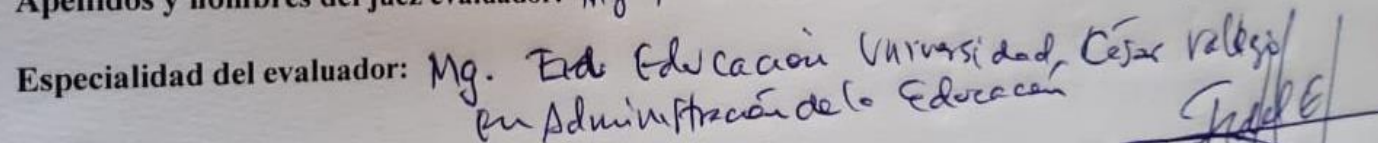 Apellidos y nombres del juez evaluador: Mg
Especialidad del evaluador: Mg. Educación Universidad, César Vallejo
en Administración de la Educacón